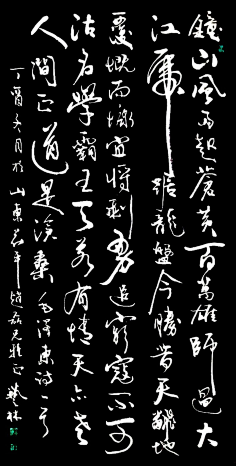 鐘山風雨起蒼黃百萬雄師過大
江虎踞龍盤今勝昔天翻地
覆慨而慷宜將剩勇追窮寇不可
沽名學霸王天若有情天亦老
人間正道是滄桑毛澤東詩一首
丁酉冬月於山東茌平趙磊兄雅正藝林